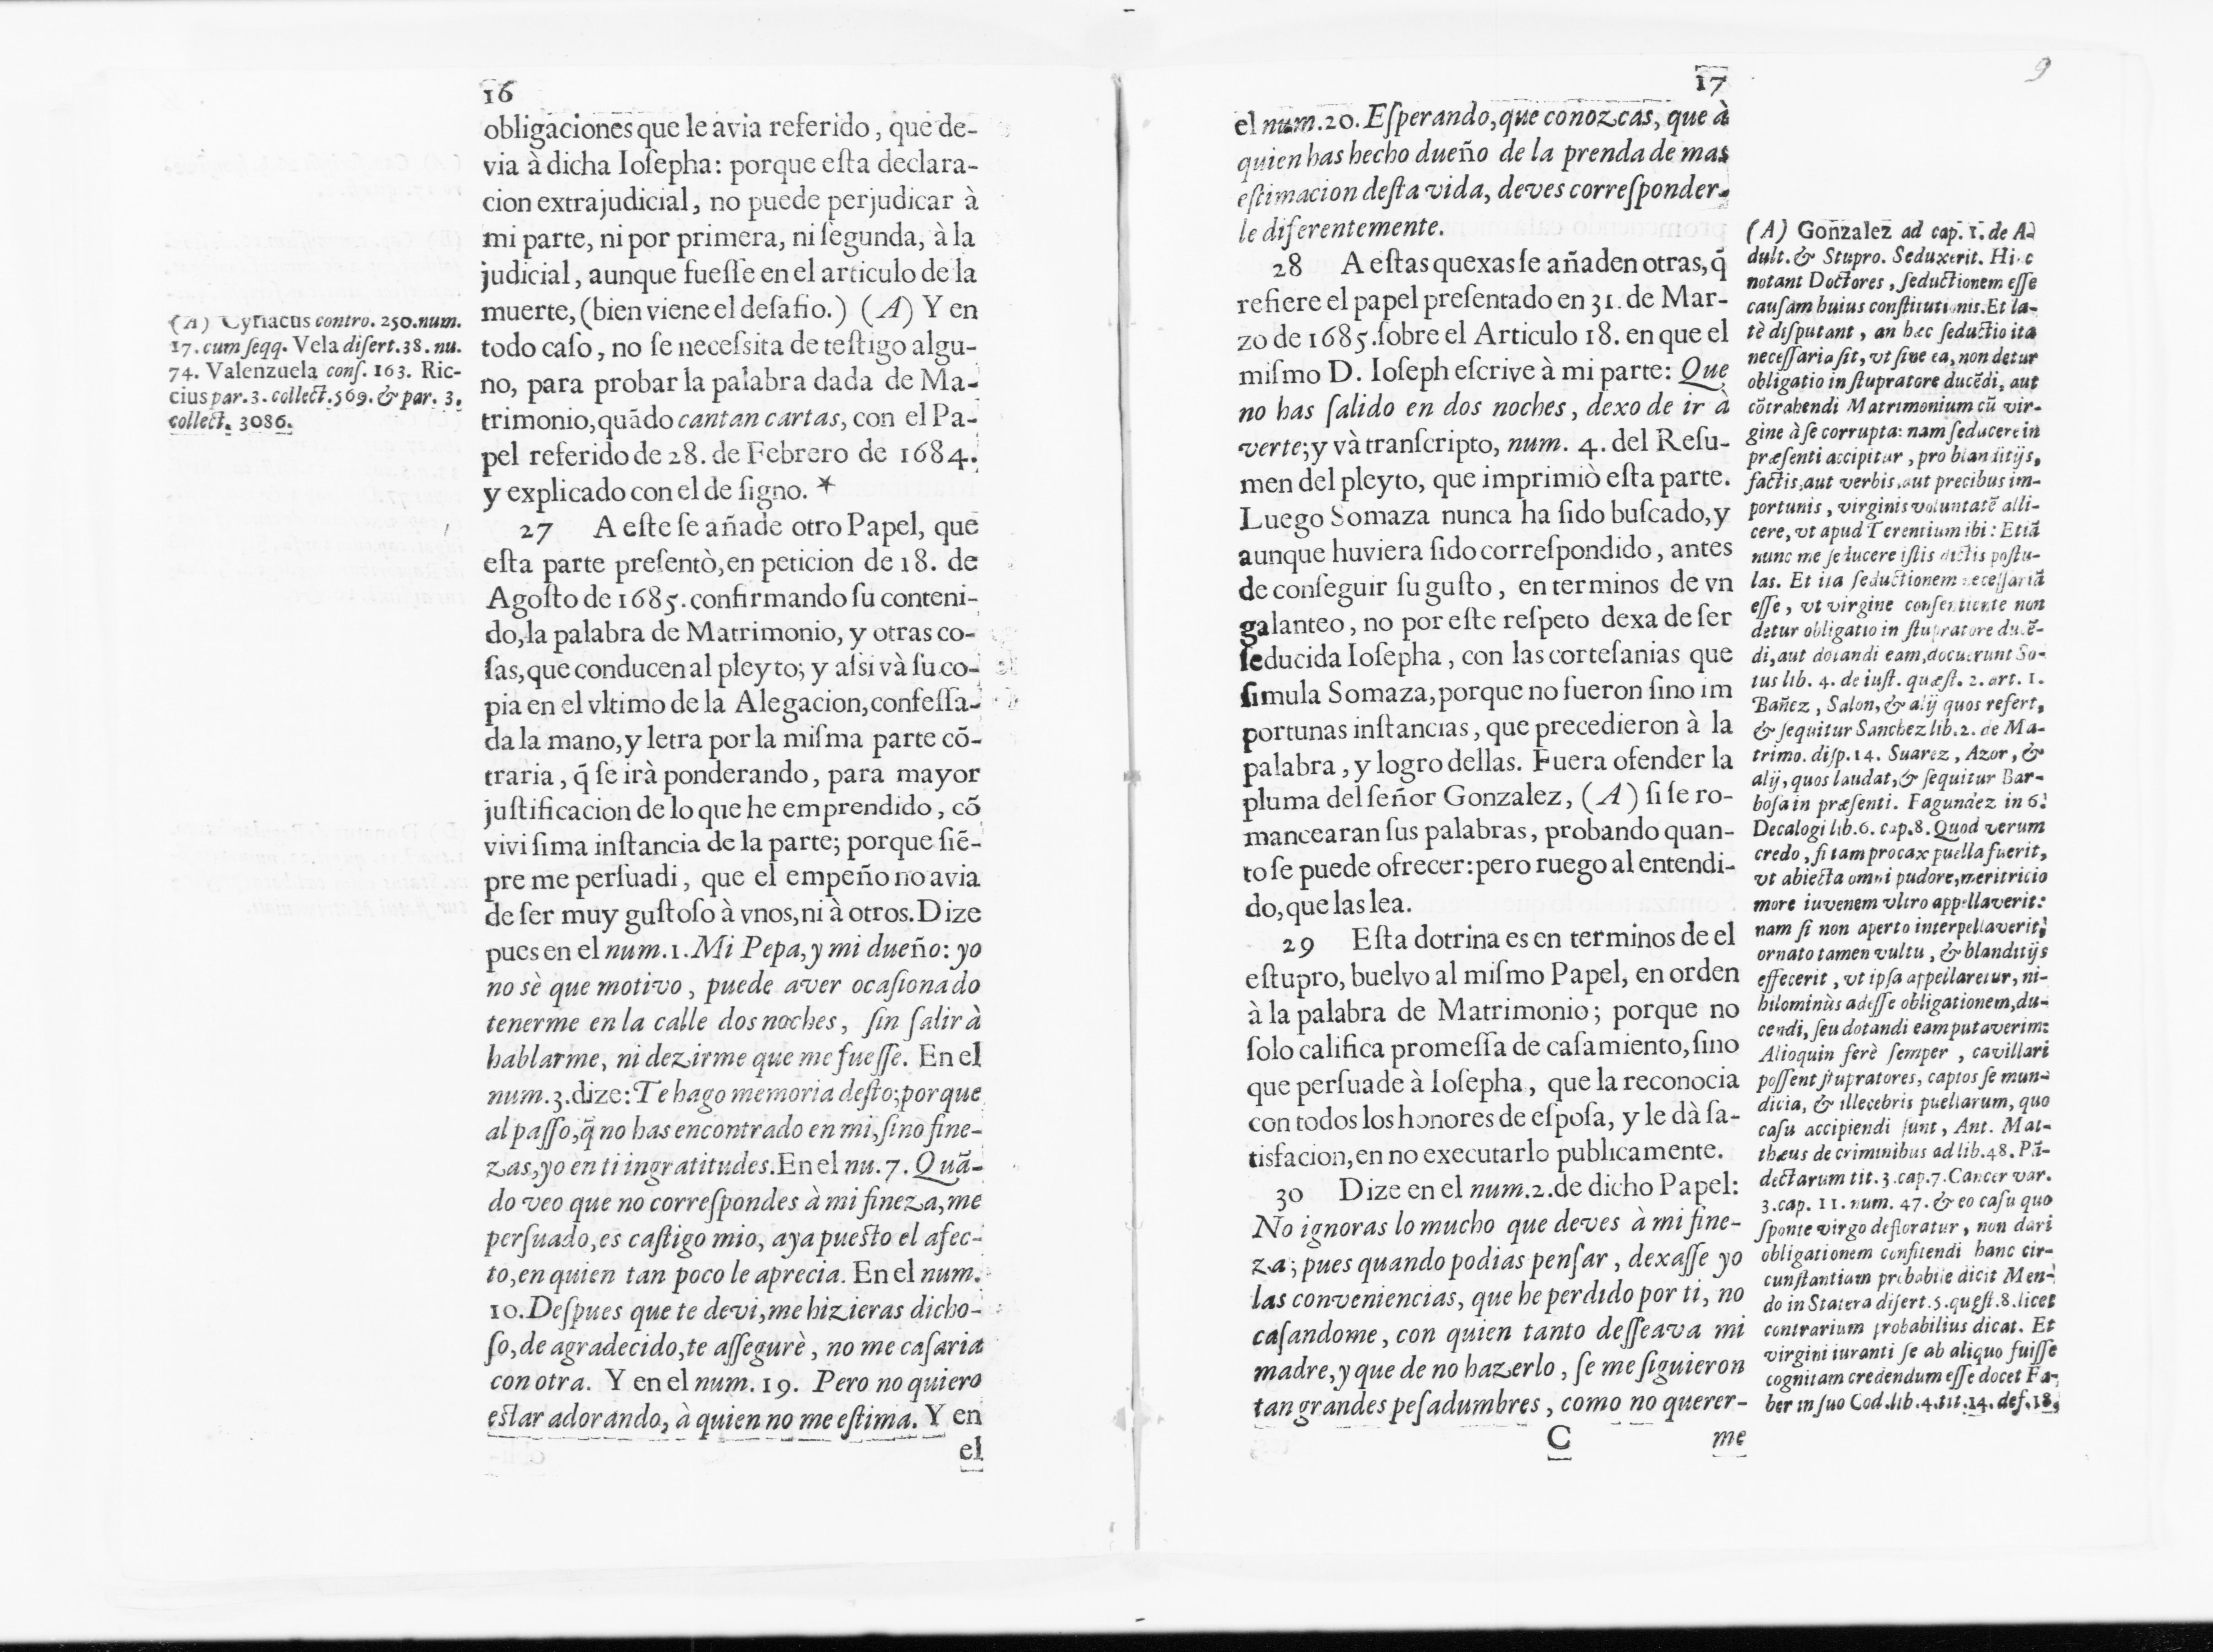 16
obligaciones que le avia referido, que de-
via à dicha Ioſepha: porque eſta declara-
cion extrajudicial, no puede perjudicar à
mi parte, ni por primera, ni ſegunda, à la
judicial, aunque fueſſe en el articulo de la
muerte, (bien viene el deſafio.) (A) Y en
todo caſo, no ſe neceſsita de teſtigo algu-
no, para probar la palabra dada de Ma-
trimonio, quãdo cantan cartas, con el Pa-
pel referido de 28. de Febrero de 1684.
y explicado con el de ſigno. *
27 A eſte ſe añade otro Papel, que
eſta parte preſentò, en peticion de 18. de
Agoſto de 1685. confirmando ſu conteni-
do, la palabra de Matrimonio, y otras co-
ſas, que conducen al pleyto; y aſsi và ſu co-
pia en el vltimo de la Alegacion, confeſſa-
da la mano, y letra por la miſma parte cõ-
traria, q̃ ſe irà ponderando, para mayor
juſtificacion de lo que he emprendido, cõ
viviſima inſtancia de la parte; porque ſiẽ-
pre me perſuadi, que el empeño no avia
de ſer muy guſtoſo à vnos, ni à otros. Dize
pues en el num. 1. Mi Pepa, y mi dueño: yo
no sè que motivo, puede aver ocaſionado
tenerme en la calle dos noches, ſin ſalir à
hablarme, ni dezirme que me fueſſe. En el
num. 3. dize: Te hago memoria deſto; porque
al paſſo, q̃ no has encontrado en mi, ſino fine-
zas, yo en ti ingratitudes. En el nu. 7. Quã-
do veo que no correſpondes à mi fineza, me
perſuado, es caſtigo mio, aya pueſto el afec-
to, en quien tan poco le aprecia. En el num.
10. Deſpues que te devi, me hizieras dicho-
ſo, de agradecido, te aſſegurè, no me caſaria
con otra. Y en el num. 19. Pero no quiero
eſtar adorando, à quien no me eſtima. Y en
el
(A) Cyriacus contro. 250. num.
17. cum ſeqq. Vela diſert. 38. nu.
74. Valenzuela conſ. 163. Ric-
cius par. 3. collect. 569. & par. 3.
collect. 3086.
17
9
el num. 20. Eſperando, que conozcas, que à
quien has hecho dueño de la prenda de mas
eſtimacion deſta vida, deves correſponder-
le diferentemente.
28 A eſtas quexas ſe añaden otras, q̃
refiere el papel preſentado en 31. de Mar-
zo de 1685. ſobre el Articulo 18. en que el
miſmo D. Ioſeph eſcrive à mi parte: Que
no has ſalido en dos noches, dexo de ir à
verte; y và tranſcripto, num. 4. del Reſu-
men del pleyto, que imprimiò eſta parte.
Luego Somaza nunca ha ſido buſcado, y
aunque huviera ſido correſpondido, antes
de conſeguir ſu guſto, en terminos de vn
galanteo, no por eſte reſpeto dexa de ſer
ſeducida Ioſepha, con las corteſanias que
ſimula Somaza, porque no fueron ſino im
portunas inſtancias, que precedieron à la
palabra, y logro dellas. Fuera ofender la
pluma del ſeñor Gonzalez, (A) ſi ſe ro-
mancearan ſus palabras, probando quan-
to ſe puede ofrecer: pero ruego al entendi-
do, que las lea.
29 Eſta dotrina es en terminos de el
eſtupro, buelvo al miſmo Papel, en orden
à la palabra de Matrimonio; porque no
ſolo califica promeſſa de caſamiento, ſino
que perſuade à Ioſepha, que la reconocia
con todos los honores de eſpoſa, y le dà ſa-
tisfacion, en no executarlo publicamente.
30 Dize en el num. 2. de dicho Papel:
No ignoras lo mucho que deves à mi fine-
za; pues quando podias penſar, dexaſſe yo
las conveniencias, que he perdido por ti, no
caſandome, con quien tanto deſſeava mi
madre, y que de no hazerlo, ſe me ſiguieron
tan grandes peſadumbres, como no querer-
C me
(A) Gonzalez ad cap. 1. de A-
dult. & Stupro. Seduxerit. Hinc
notant Doctores, ſeductionem eſſe
cauſam huius conſtitutionis. Et la-
tè diſputant, an hæc ſeductio ita
neceſſaria ſit, vt ſine ea, non detur
obligatio in ſtupratore ducẽdi, aut
cõtrahendi Matrimonium cũ vir-
gine à ſe corrupta: nam ſeducere in
præſenti accipitur, pro blanditijs,
factis, aut verbis, aut precibus im-
portunis, virginis voluntatẽ alli-
cere, vt apud Terentium ibi: Etiã
nunc me ſeducere iſtis dictis poſtu-
las. Et ita ſeductionem neceſſariã
eſſe, vt virgine conſentiente non
detur obligatio in ſtupratore ducẽ-
di, aut dotandi eam, docuerunt So-
tus lib. 4. de iuſt. quæſt. 2. art. 1.
Bañez, Salon, & alij quos refert,
& ſequitur Sanchez lib. 2. de Ma-
trimo. diſp. 14. Suarez, Azor, &
alij, quos laudat, & ſequitur Bar-
boſa in præſenti. Fagundez in 6.
Decalogi lib. 6. cap. 8. Quod verum
credo, ſi tam procax puella fuerit,
vt abiecta omni pudore, meritricio
more iuvenem vltro appellaverit:
nam ſi non aperto interpellaverit,
ornato tamen vultu, & blanditijs
effecerit, vt ipſa appellaretur, ni-
hilominùs adeſſe obligationem, du-
cendi, ſeu dotandi eam putaverim:
Alioquin ferè ſemper, cavillari
poſſent ſtupratores, captos ſe mun-
dicia, & illecebris puellarum, quo
caſu accipiendi ſunt, Ant. Mat-
thæus de criminibus ad lib. 48. Pã-
dectarum tit. 3. cap. 7. Cancer var.
3. cap. 11. num. 47. & eo caſu quo
ſponte virgo defloratur, non dari
obligationem confitendi hanc cir-
cunſtantiam probabile dicit Men-
do in Statera diſert. 5. quæſt. 8. licet
contrarium probabilius dicat. Et
virgini iuranti ſe ab aliquo fuiſſe
cognitam credendum eſſe docet Fa-
ber in ſuo Cod. lib. 4. tit. 14. def. 18.